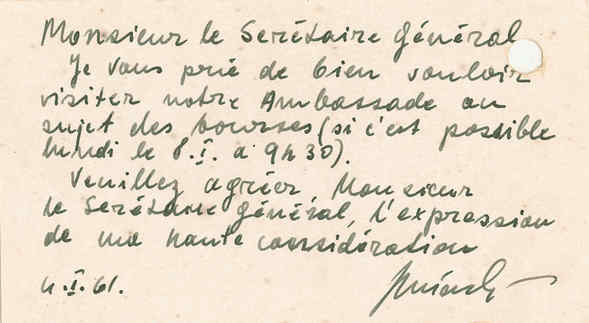 Monsieur le Serétaire général
Je vous prie de bien vouloir
visiter notre Ambassade au
sujet des bourses (si c'est possible
lundi le 8.I. à 9h30).
Veuillez agréer Monsieur
le Serétaire général, l'expression
de ma haute considération
4.I.61.